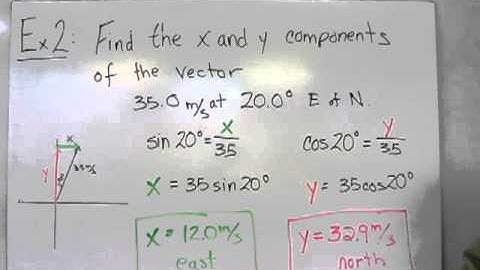 Ex2: Find the x and y components
of the vector
35.0 m/s at 20.0° E of N.
sin 20° = x/35
cos20° = y/35
x = 35 sin 20°
y = 35cos20°
x = 12.0 m/s
east
y = 32.9 m/s
north
x
y
35m/s